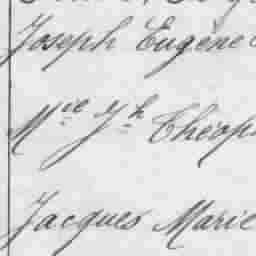 Joseph Eugène
Mce Jh Théoph
Jacques Marie